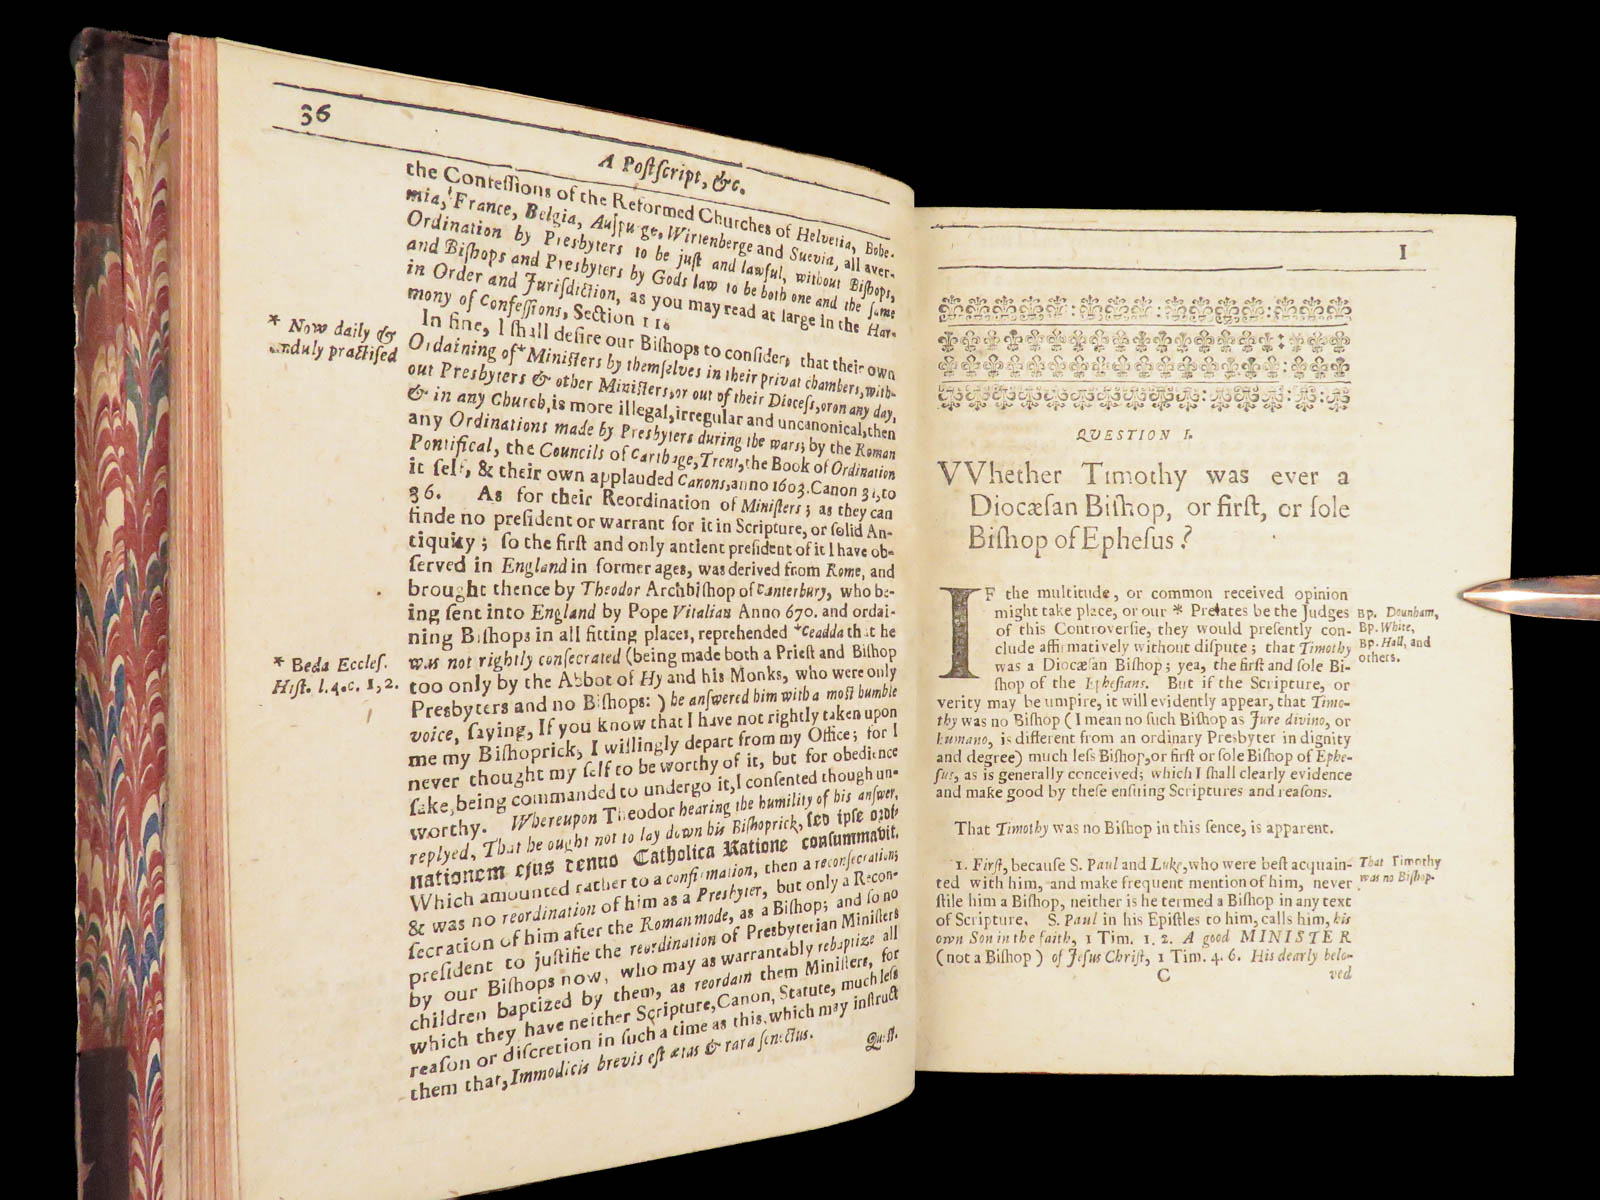 36
A Postſcript, &c.
the Confeſſions of the Reformed Churches of Helvetia, Bohe-
mia, France, Belgia, Auſpurge, Wirtenberge and Suevia, all aver-
Ordination by Presbyters to be juſt and lawful, without Biſhops,
and Biſhops and Presbyters by Gods law to be both one and the ſame
in Order and Juriſdiction, as you may read at large in the Har-
mony of Confeſſions, Section 11.
In fine, I ſhall deſire our Biſhops to conſider, that their own
* Now daily &
unduly practiſed
Ordaining of * Miniſters by themſelves in their privat chambers, with-
out Presbyters & other Miniſters, or out of their Dioceſs, or on any day,
& in any Church, is more illegal, irregular and uncanonical, then
any Ordinations made by Presbyters during the wars; by the Roman
Pontifical, the Councils of Carthage, Trent, the Book of Ordination
it ſelf, & their own applauded Canons, anno 1603. Canon 31, to
36. As for their Reordination of Miniſters; as they can
finde no preſident or warrant for it in Scripture, or ſolid An-
tiquity; ſo the firſt and only antient preſident of it I have ob-
ſerved in England in former ages, was derived from Rome, and
brought thence by Theodor Archbiſhop of Canterbury, who be-
ing ſent into England by Pope Vitalian Anno 670. and ordai-
ning Biſhops in all fitting places, reprehended * Ceadda that he
* Beda Eccleſ.
Hiſt. l. 4. c. 1, 2.
was not rightly conſecrated (being made both a Prieſt and Biſhop
too only by the Abbot of Hy and his Monks, who were only
Presbyters and no Biſhops:) he anſwered him with a moſt humble
voice, ſaying, If you know that I have not rightly taken upon
me my Biſhoprick, I willingly depart from my Office; for I
never thought my ſelf to be worthy of it, but for obedience
ſake, being commanded to undergo it, I conſented though un-
worthy. Whereupon Theodor hearing the humility of his anſwer,
replyed, That he ought not to lay down his Biſhoprick, ſed ipſe ordi-
nationem ejus denuo Catholica Ratione conſummavit.
Which amounted rather to a confirmation, then a reconſecration;
& was no reordination of him as a Presbyter, but only a Recon-
ſecration of him after the Roman mode, as a Biſhop; and ſo no
preſident to juſtifie the reordination of Presbyterian Miniſters
by our Biſhops now, who may as warrantably rebaptize all
children baptized by them, as reordain them Miniſters, for
which they have neither Scripture, Canon, Statute, much leſs
reaſon or diſcretion in ſuch a time as this, which may inſtruct
them that, Immodicis brevis eſt ætas & rara ſenectus.
Queſt.
1
QUESTION I.
VVhether Timothy was ever a
Diocæſan Biſhop, or firſt, or ſole
Biſhop of Epheſus?
IF the multitude, or common received opinion
might take place, or our * Prelates be the Judges
of this Controverſie, they would preſently con-
clude affirmatively without diſpute; that Timothy
was a Diocæſan Biſhop; yea, the firſt and ſole Bi-
ſhop of the Epheſians. But if the Scripture, or
verity may be umpire, it will evidently appear, that Timo-
thy was no Biſhop (I mean no ſuch Biſhop as Jure divino, or
humano, is different from an ordinary Presbyter in dignity
and degree) much leſs Biſhop, or firſt or ſole Biſhop of Ephe-
ſus, as is generally conceived; which I ſhall clearly evidence
and make good by theſe enſuing Scriptures and reaſons.
Bp. Dounham,
Bp. White,
Bp. Hall, and
others.
That Timothy was no Biſhop in this ſence, is apparent.
1. Firſt, becauſe S. Paul and Luke, who were beſt acquain-
ted with him, and make frequent mention of him, never
ſtile him a Biſhop, neither is he termed a Biſhop in any text
of Scripture. S. Paul in his Epiſtles to him, calls him, his
own Son in the faith, 1 Tim. 1. 2. A good MINISTER
(not a Biſhop) of Jeſus Chriſt, 1 Tim. 4. 6. His dearly belo-
That Timothy
was no Biſhop.
C
ved